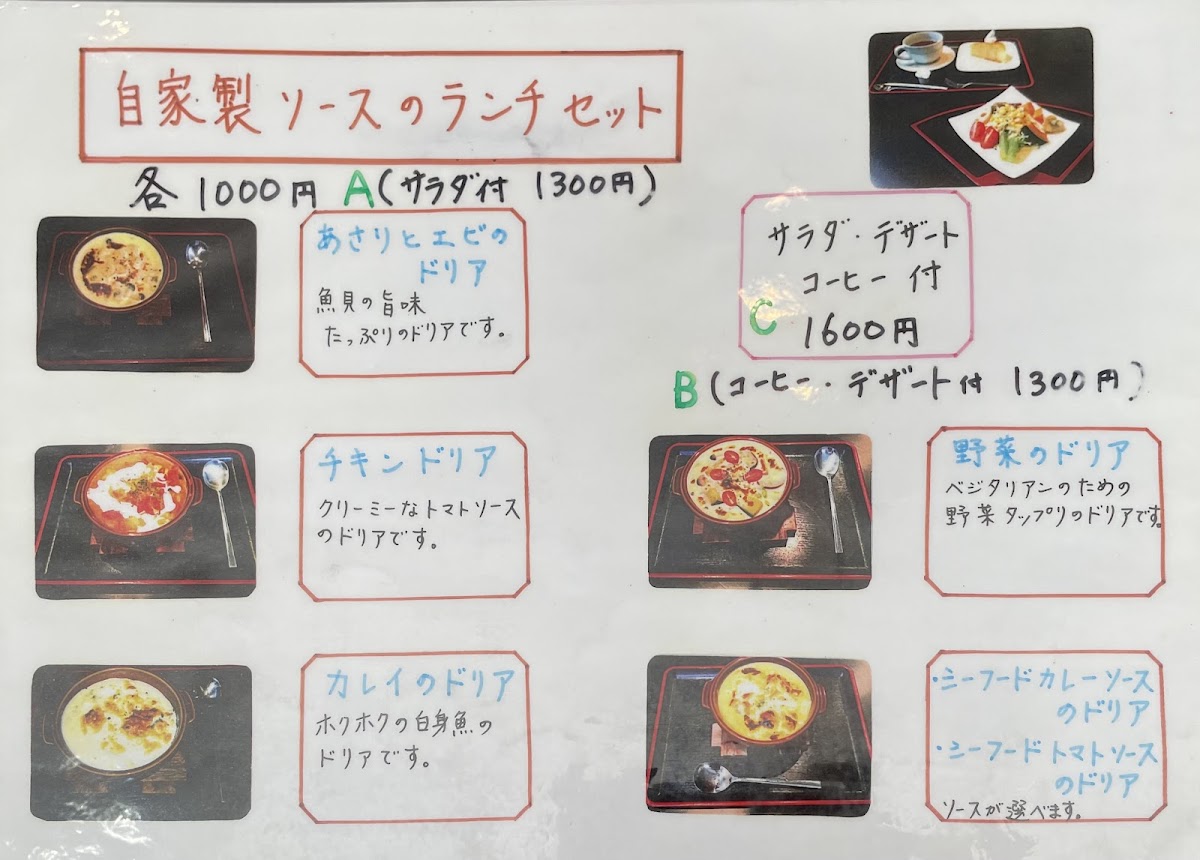 自家製ソースのランチセット
各 1000円 A(サラダ付 1300円)
あさりとエビの
ドリア
魚貝の旨味
たっぷりのドリアです。
サラダ・デザート
コーヒー付
C 1600円
B(コーヒー・デザート付 1300円)
チキンドリア
クリーミーなトマトソース
のドリアです。
野菜のドリア
ベジタリアンのための
野菜タップリのドリアです。
カレイのドリア
ホクホクの白身魚の
ドリアです。
・シーフードカレーソース
のドリア
・シーフードトマトソース
のドリア
ソースが選べます。